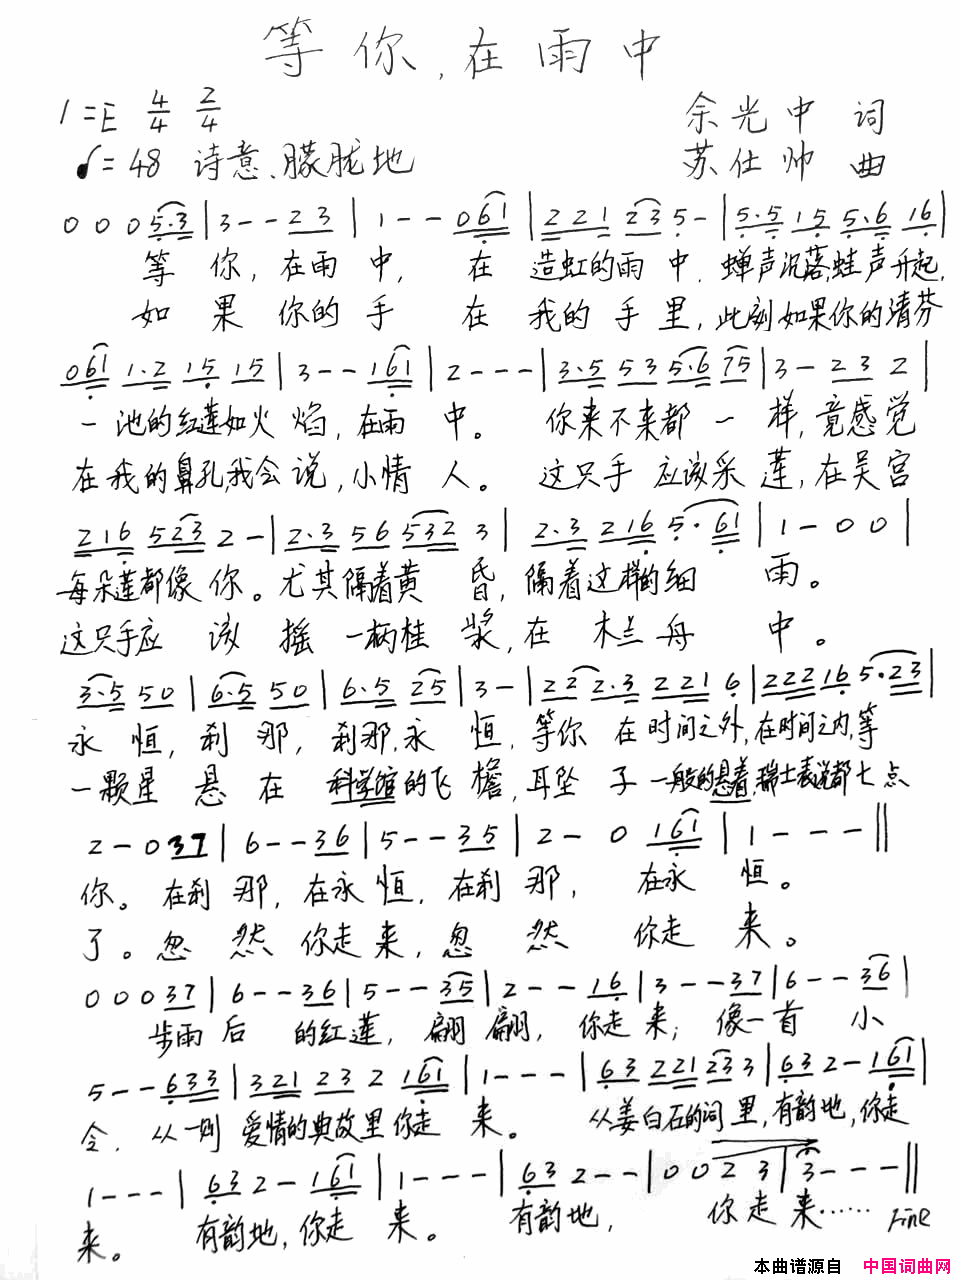 等你,在雨中
1=E 4/4 2/4 余光中 词
♩=48 诗意、朦胧地 苏仕帅 曲
0 0 0 5·3 | 3 - - 2 3 | 1 - - 0 6 1 | 2 2 1 2 3 5 - | 5·5 1 5 5·6 1 6 |
等 你, 在雨 中, 在 造虹的雨 中, 蝉声沉落,蛙声升起,
如 果 你的 手 在 我的 手 里, 此刻 如果你的清芬
0 6 1 1·2 1 5 1 5 | 3 - - 1 6 1 | 2 - - - | 3·5 5 3 5·6 7 5 | 3 - 2 3 2 |
一池的红莲如火 焰, 在雨 中。 你来不来都 一 样, 竟感觉
在我的鼻孔,我会 说, 小情 人。 这只手 应该采 莲, 在吴宫
2 1 6 5 2 3 2 - | 2·3 5 6 5 3 2 3 | 2·3 2 1 6 5·6 1 | 1 - 0 0 |
每朵莲都像 你。 尤其隔着黄 昏, 隔着这样的细 雨。
这只手应 该 摇 一柄桂 浆, 在 木兰舟 中。
3·5 5 0 | 6·5 5 0 | 6·5 2 5 | 3 - | 2 2 2·3 2 2 1 6 | 2 2 2 1 6 5·2 3 |
永 恒, 刹 那, 刹那,永 恒, 等你 在时间之外, 在时间之内,等
一颗星 悬 在 科学馆的飞 檐, 耳坠 子 一般的悬着,瑞士表说都七点
2 - 0 3 7 | 6 - - 3 6 | 5 - - 3 5 | 2 - 0 1 6 1 | 1 - - - ‖
你。 在刹 那, 在永 恒, 在刹 那, 在永 恒。
了。 忽 然 你走 来, 忽 然 你走 来。
0 0 0 3 7 | 6 - - 3 6 | 5 - - 3 5 | 2 - - 1 6 | 3 - - 3 7 | 6 - - 3 6 |
步雨 后 的红 莲, 翩 翩, 你走 来; 像一 首 小
5 - - 6 3 3 | 3 2 1 2 3 2 1 6 1 | 1 - - - | 6 3 2 2 1 2 3 3 | 6 3 2 - 1 6 1 |
令, 从一则 爱情的典故里你走 来。 从姜白石的词 里, 有韵地, 你走
1 - - - | 6 3 2 - 1 6 1 | 1 - - - | 6 3 2 - - | 0 0 2 3 | 3 - - - ‖
来。 有韵地, 你走 来。 有韵地, 你走来…… Fine
本曲谱源自 中国词曲网